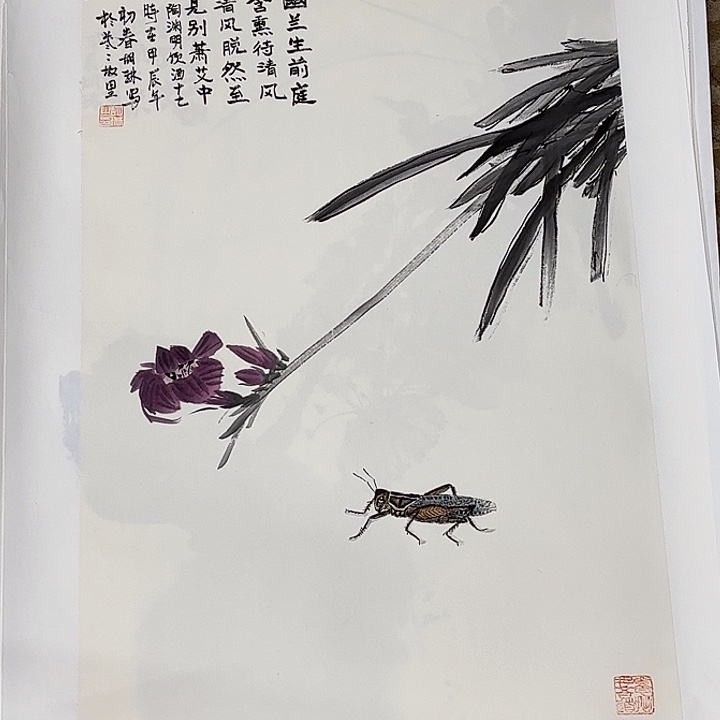 幽兰生前庭
含熏待清风
清风脱然至
见别萧艾中
陶渊明饮酒十七
时在甲辰年
初春